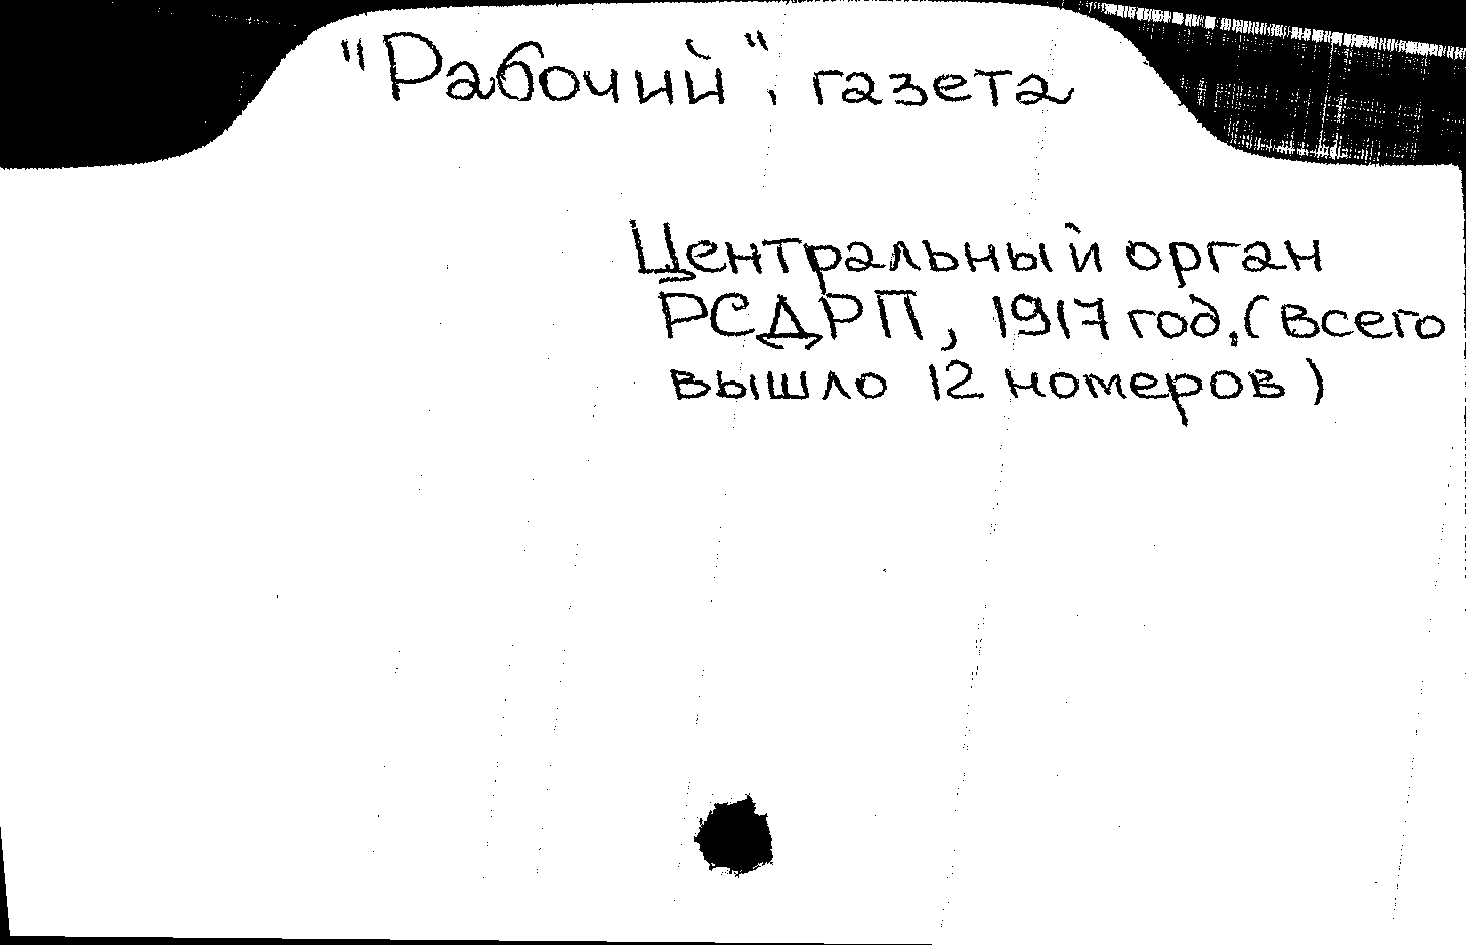 "Рабочий", газета
Центральный орган
РСДРП, 1917 год. (всего
вышло 12 номеров)